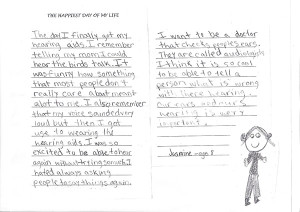 THE HAPPIEST DAY OF MY LIFE
The day I finally got my
hearing aids. I remember
telling my mom I could
hear the birds talk. It
was funny how something
that most people don't
really care about meant
alot to me. I also remember
that my voice sounded very
loud but then I got
use to wearing the
hearing aids. I was so
excited to be able to hear
again without trying so much. I
hated always asking
people to say things again.
I want to be a doctor
that checks people's ears.
They are called audiologists
I think it is so cool
to be able to tell a
person what is wrong
with there hearing.
Our ears and our
hearing is very
important.
Jasmine - age 8